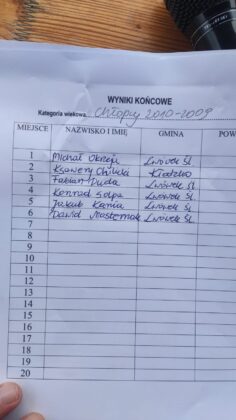 WYNIKI KOŃCOWE
Kategoria wiekowa: Chłopcy 2010-2009
MIEJSCE NAZWISKO I IMIĘ GMINA POW
1 Michał Okręj Lwówek Śl
2 Ksawery Lwówek Śl
3 Fabian Duda Lwówek Śl
4 Konrad Lwówek Śl
5 Jakub Kania Lwówek Śl
6 Dawid Lwówek Śl
7
8
9
10
11
12
13
14
15
16
17
18
19
20